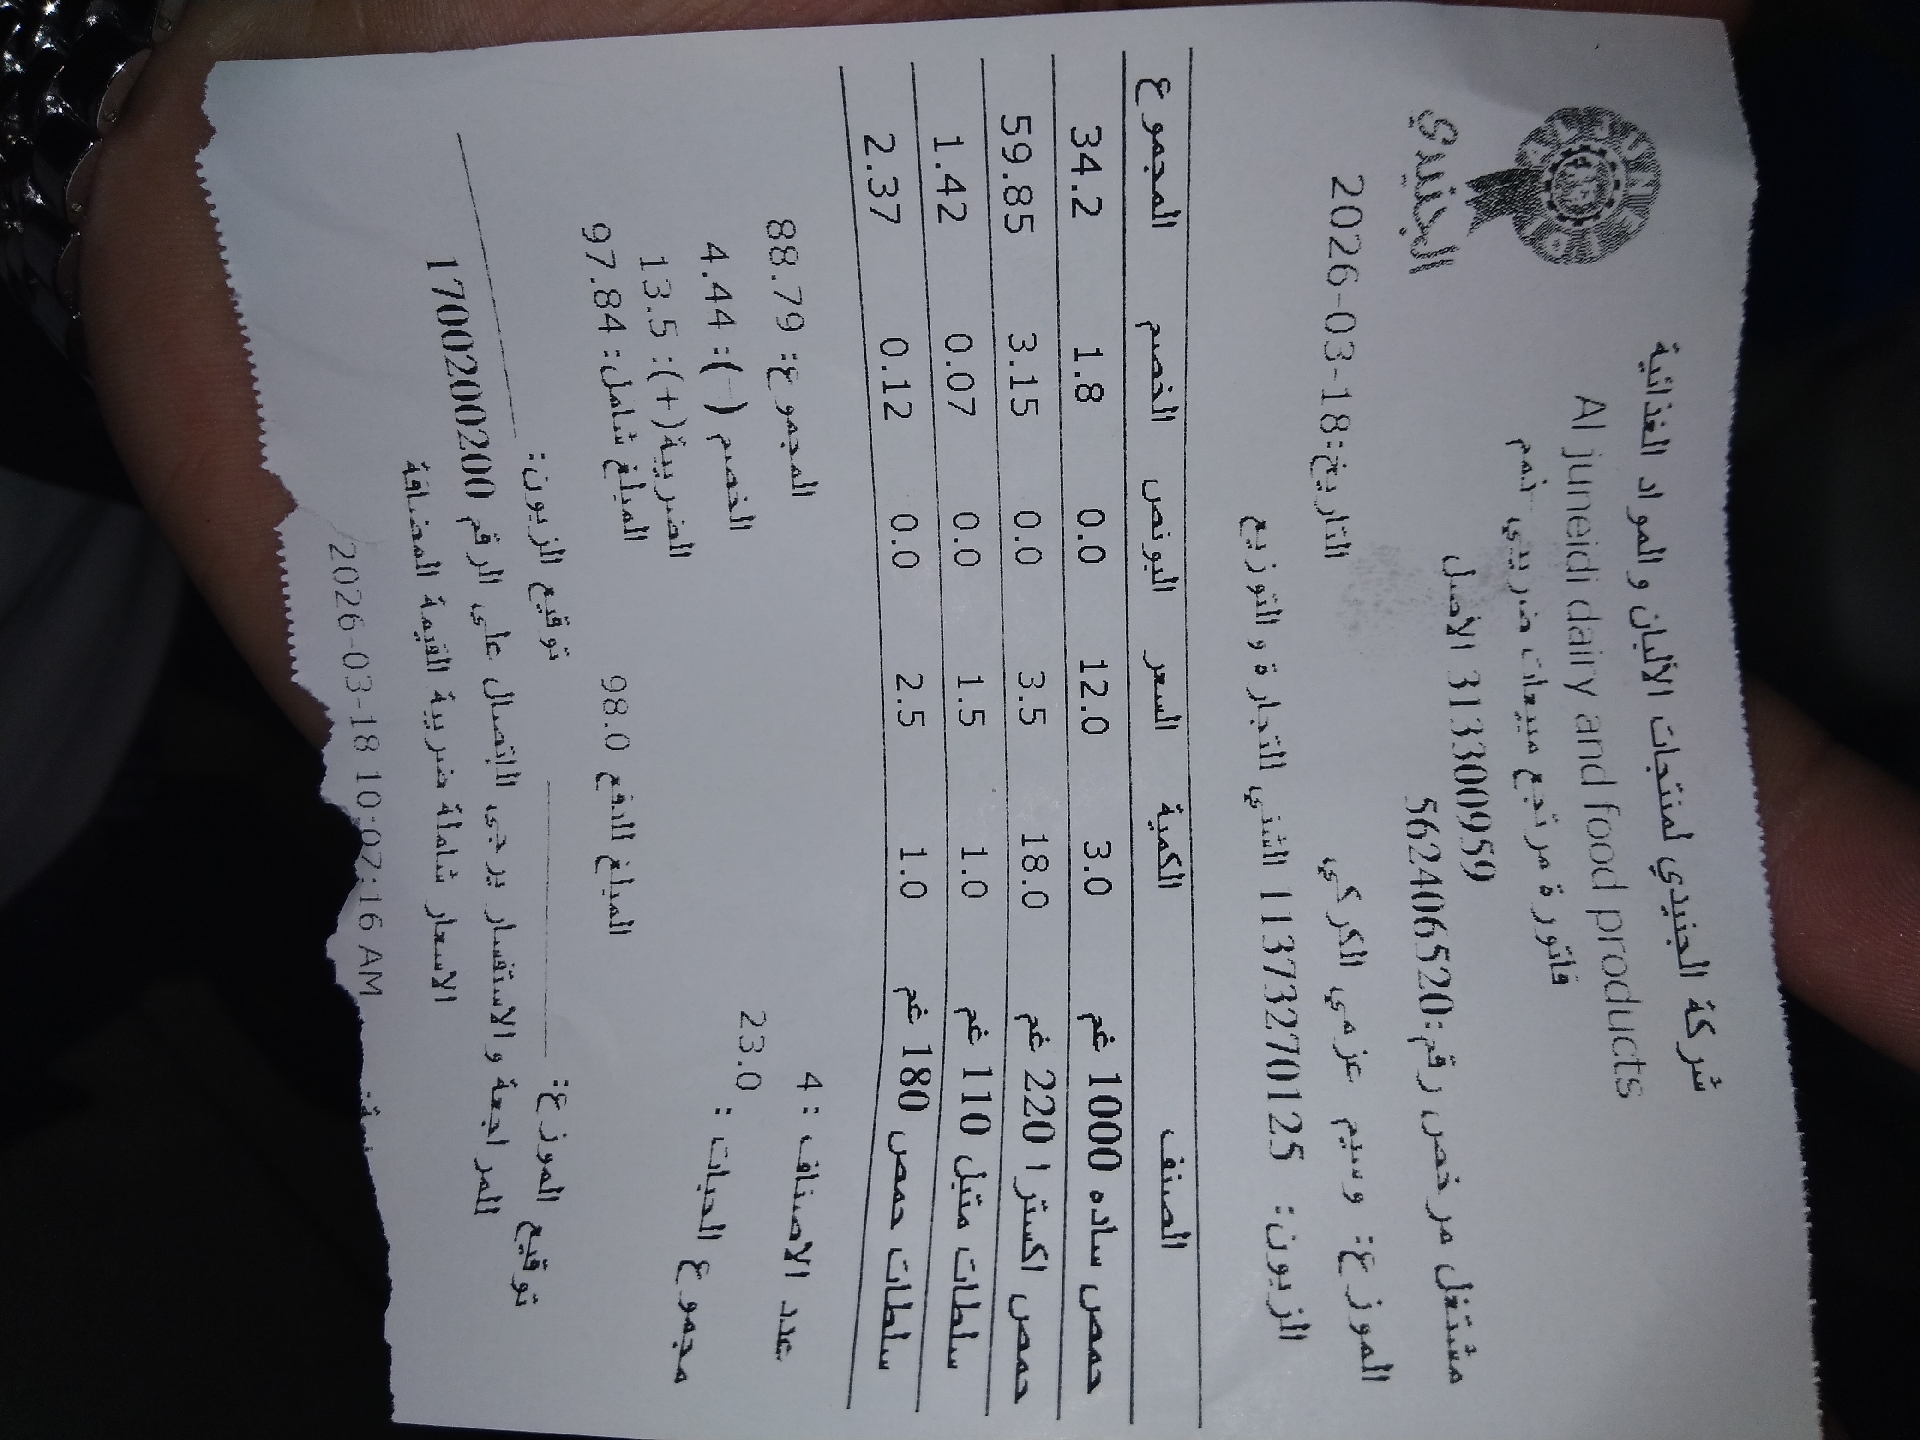 الجنيدي
شركة الجنيدي لمنتجات الألبان والمواد الغذائية
Al juneidi dairy and food products
فاتورة مرتجع مبيعات ضريبي خصم
313300959 الأصل
مشتغل مرخص رقم:562406520
الموزع: وسيم عزمي الكركي التاريخ:2026-03-18
الزبون: 11373270125 الثني للتجارة والتوزيع
الصنف الكمية السعر البونص الخصم المجموع
حمص ساده 1000 غم 3.0 12.0 0.0 1.8 34.2
حمص اكسترا 220 غم 18.0 3.5 0.0 3.15 59.85
سلطات متبل 110 غم 1.0 1.5 0.0 0.07 1.42
سلطات حمص 180 غم 1.0 2.5 0.0 0.12 2.37
عدد الاصناف : 4 المجموع: 88.79
مجموع الحبات : 23.0 الخصم (-): 4.44
الضريبة(+): 13.5
المبلغ للدفع 98.0 المبلغ شامل: 97.84
توقيع الموزع: توقيع الزبون:
للمراجعة والاستفسار يرجى الاتصال على الرقم 1700200200
الاسعار شاملة ضريبة القيمة المضافة
2026-03-18 10:07:16 AM